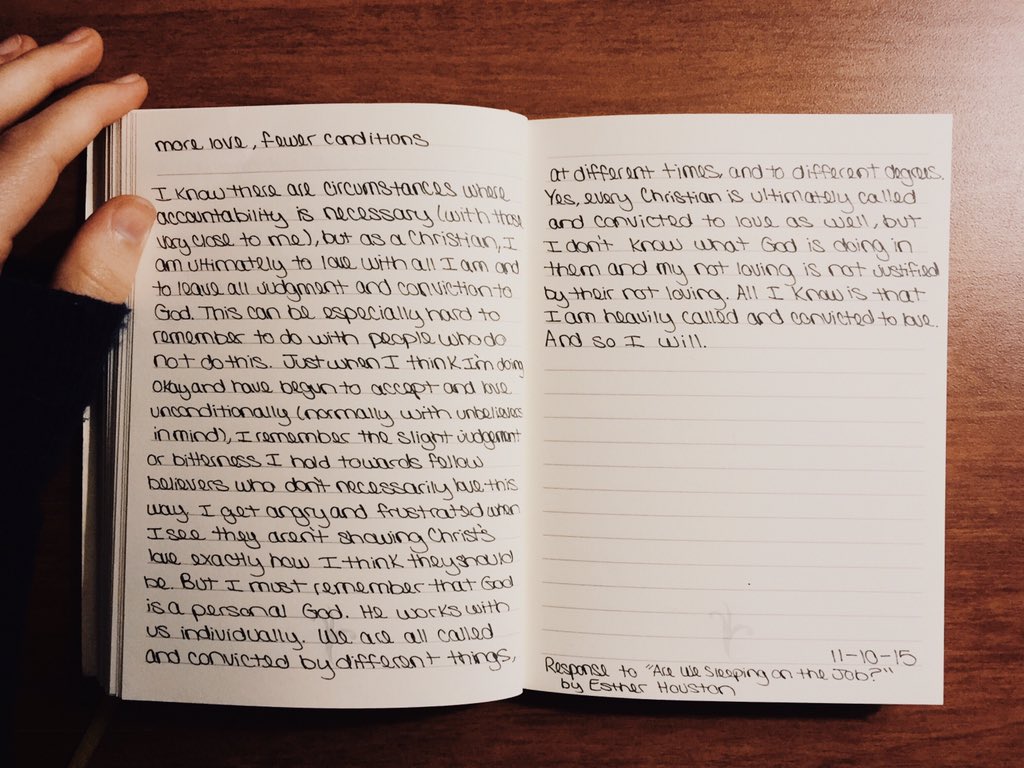 more love, fewer conditions
I know there are circumstances where
accountability is necessary (with those
very close to me), but as a Christian, I
am ultimately to love with all I am and
to leave all judgment and conviction to
God. This can be especially hard to
remember to do with people who do
not do this. Just when I think I'm doing
okay and have begun to accept and love
unconditionally (normally with unbelievers
in mind), I remember the slight judgement
or bitterness I hold towards fellow
believers who don't necessarily love this
way. I get angry and frustrated when
I see they aren't showing Christ's
love exactly how I think they should
be. But I must remember that God
is a personal God. He works with
us individually. We are all called
and convicted by different things,
at different times, and to different degrees.
Yes, every Christian is ultimately called
and convicted to love as well, but
I don't know what God is doing in
them and my not loving is not justified
by their not loving. All I know is that
I am heavily called and convicted to love.
And so I will.
11-10-15
Response to "Are We Sleeping on the Job?"
by Esther Houston